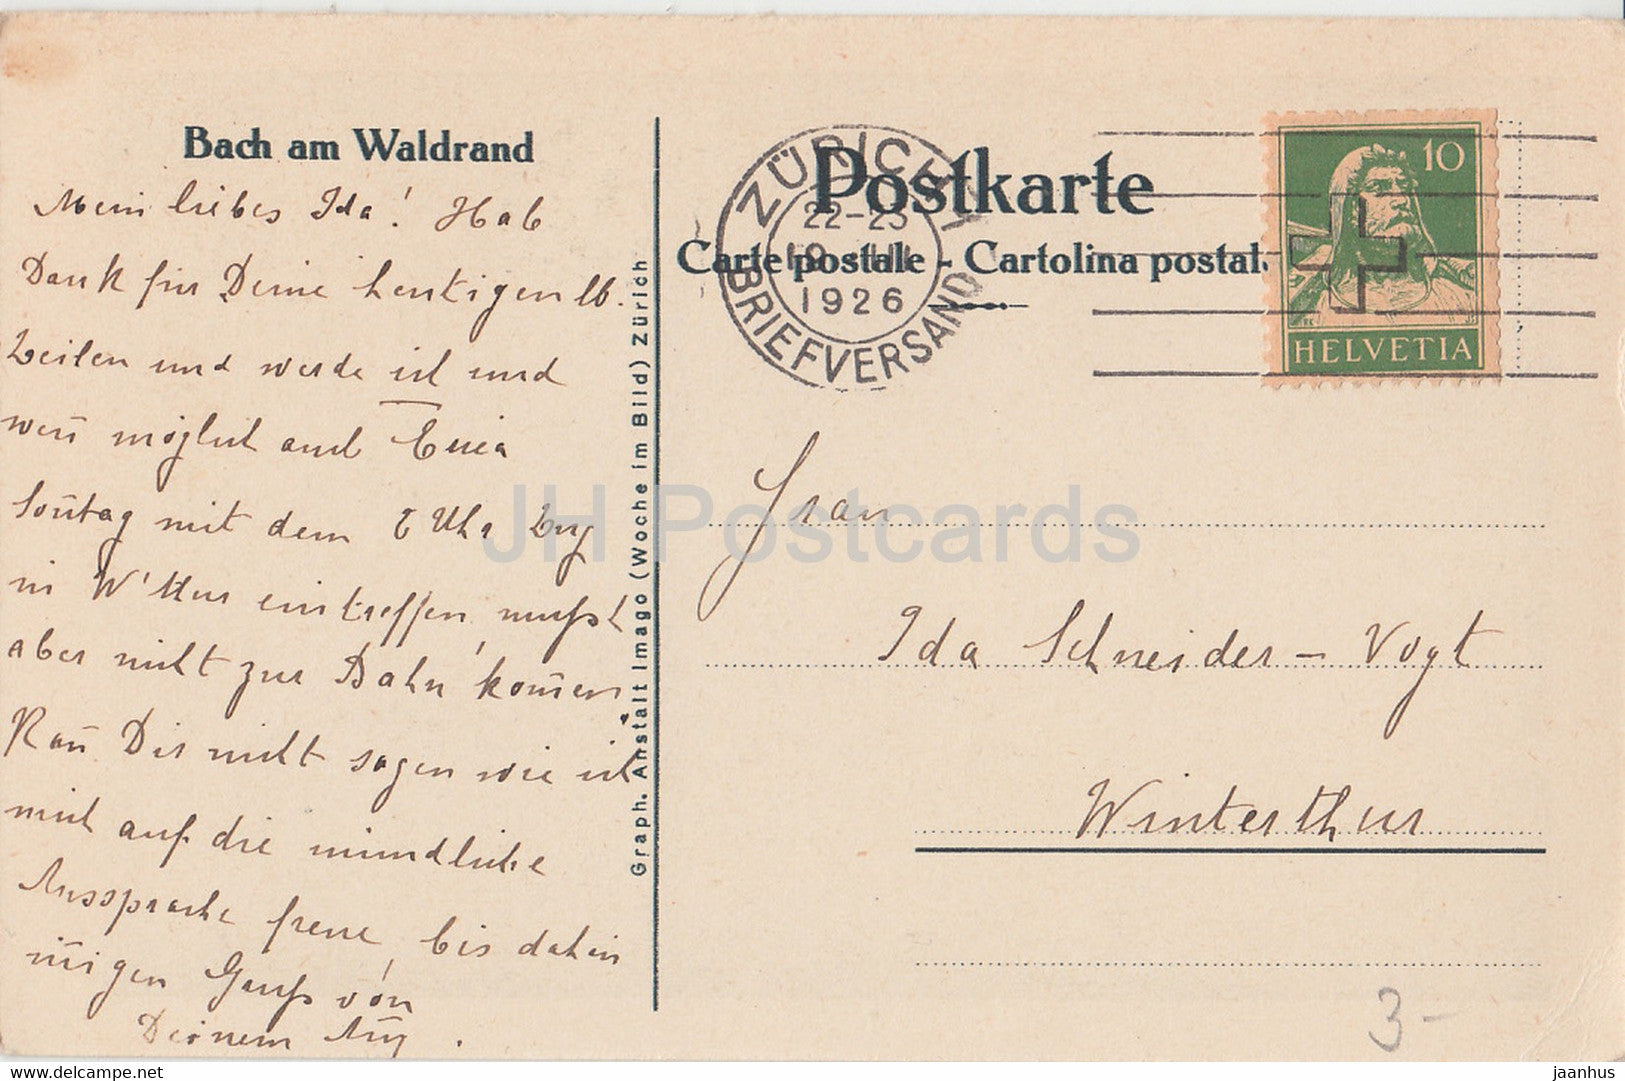 Bach am Waldrand
Mein liebes Ida! Hab
Dank für Deine heutigen lb.
Zeilen und werde ich und
weñ möglich auch Erica
Soñtag mit dem Uhr Zug
in W'thur eintreffen, mußt
aber nicht zur Bahn kom̃en
Kañ Dir nicht sagen wie ich
mich auf die mündliche
Aussprache freue, bis dahin
iñigen Gruß von
Deinem
Graph. Anstalt Imago (Woche im Bild) Zürich
Postkarte
Carte postale - Cartolina postale
ZÜRICH 1
22-23
1926
BRIEFVERSAND
10
HELVETIA
Frau
Ida Schneider-Vogt
Winterthur
3-
JH Postcards
www.delcampe.net
jaanhus